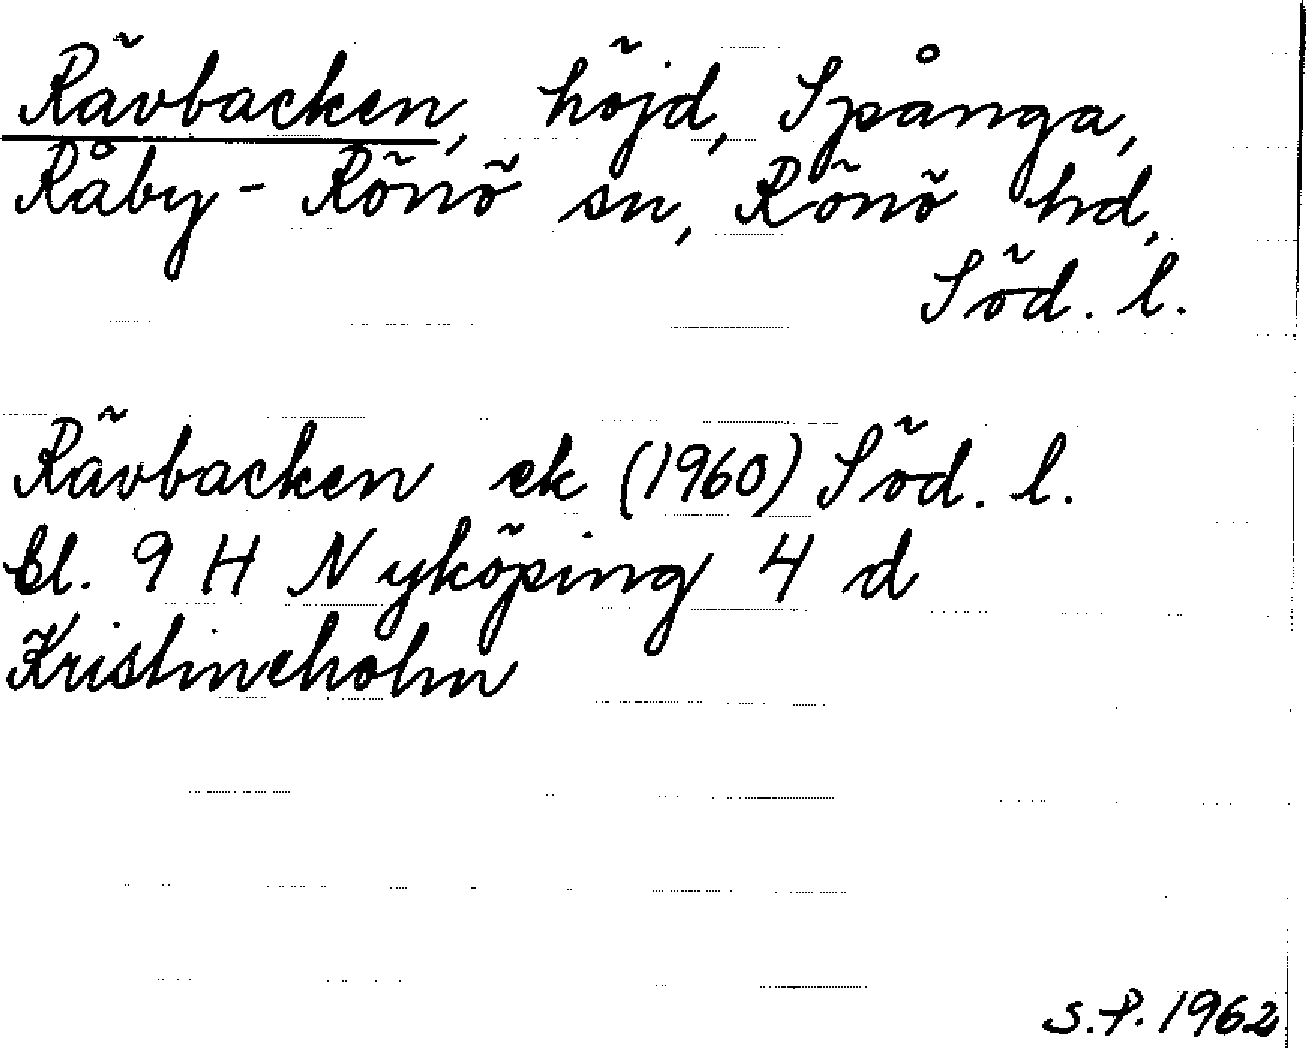 Rävbacken, höjd, Spånga,
Råby - Rönö sn, Rönö hd,
Söd. l.
Rävbacken ek (1960) Söd. l.
bl. 9 H Nyköping 4 d
Kristineholm
S.P. 1962